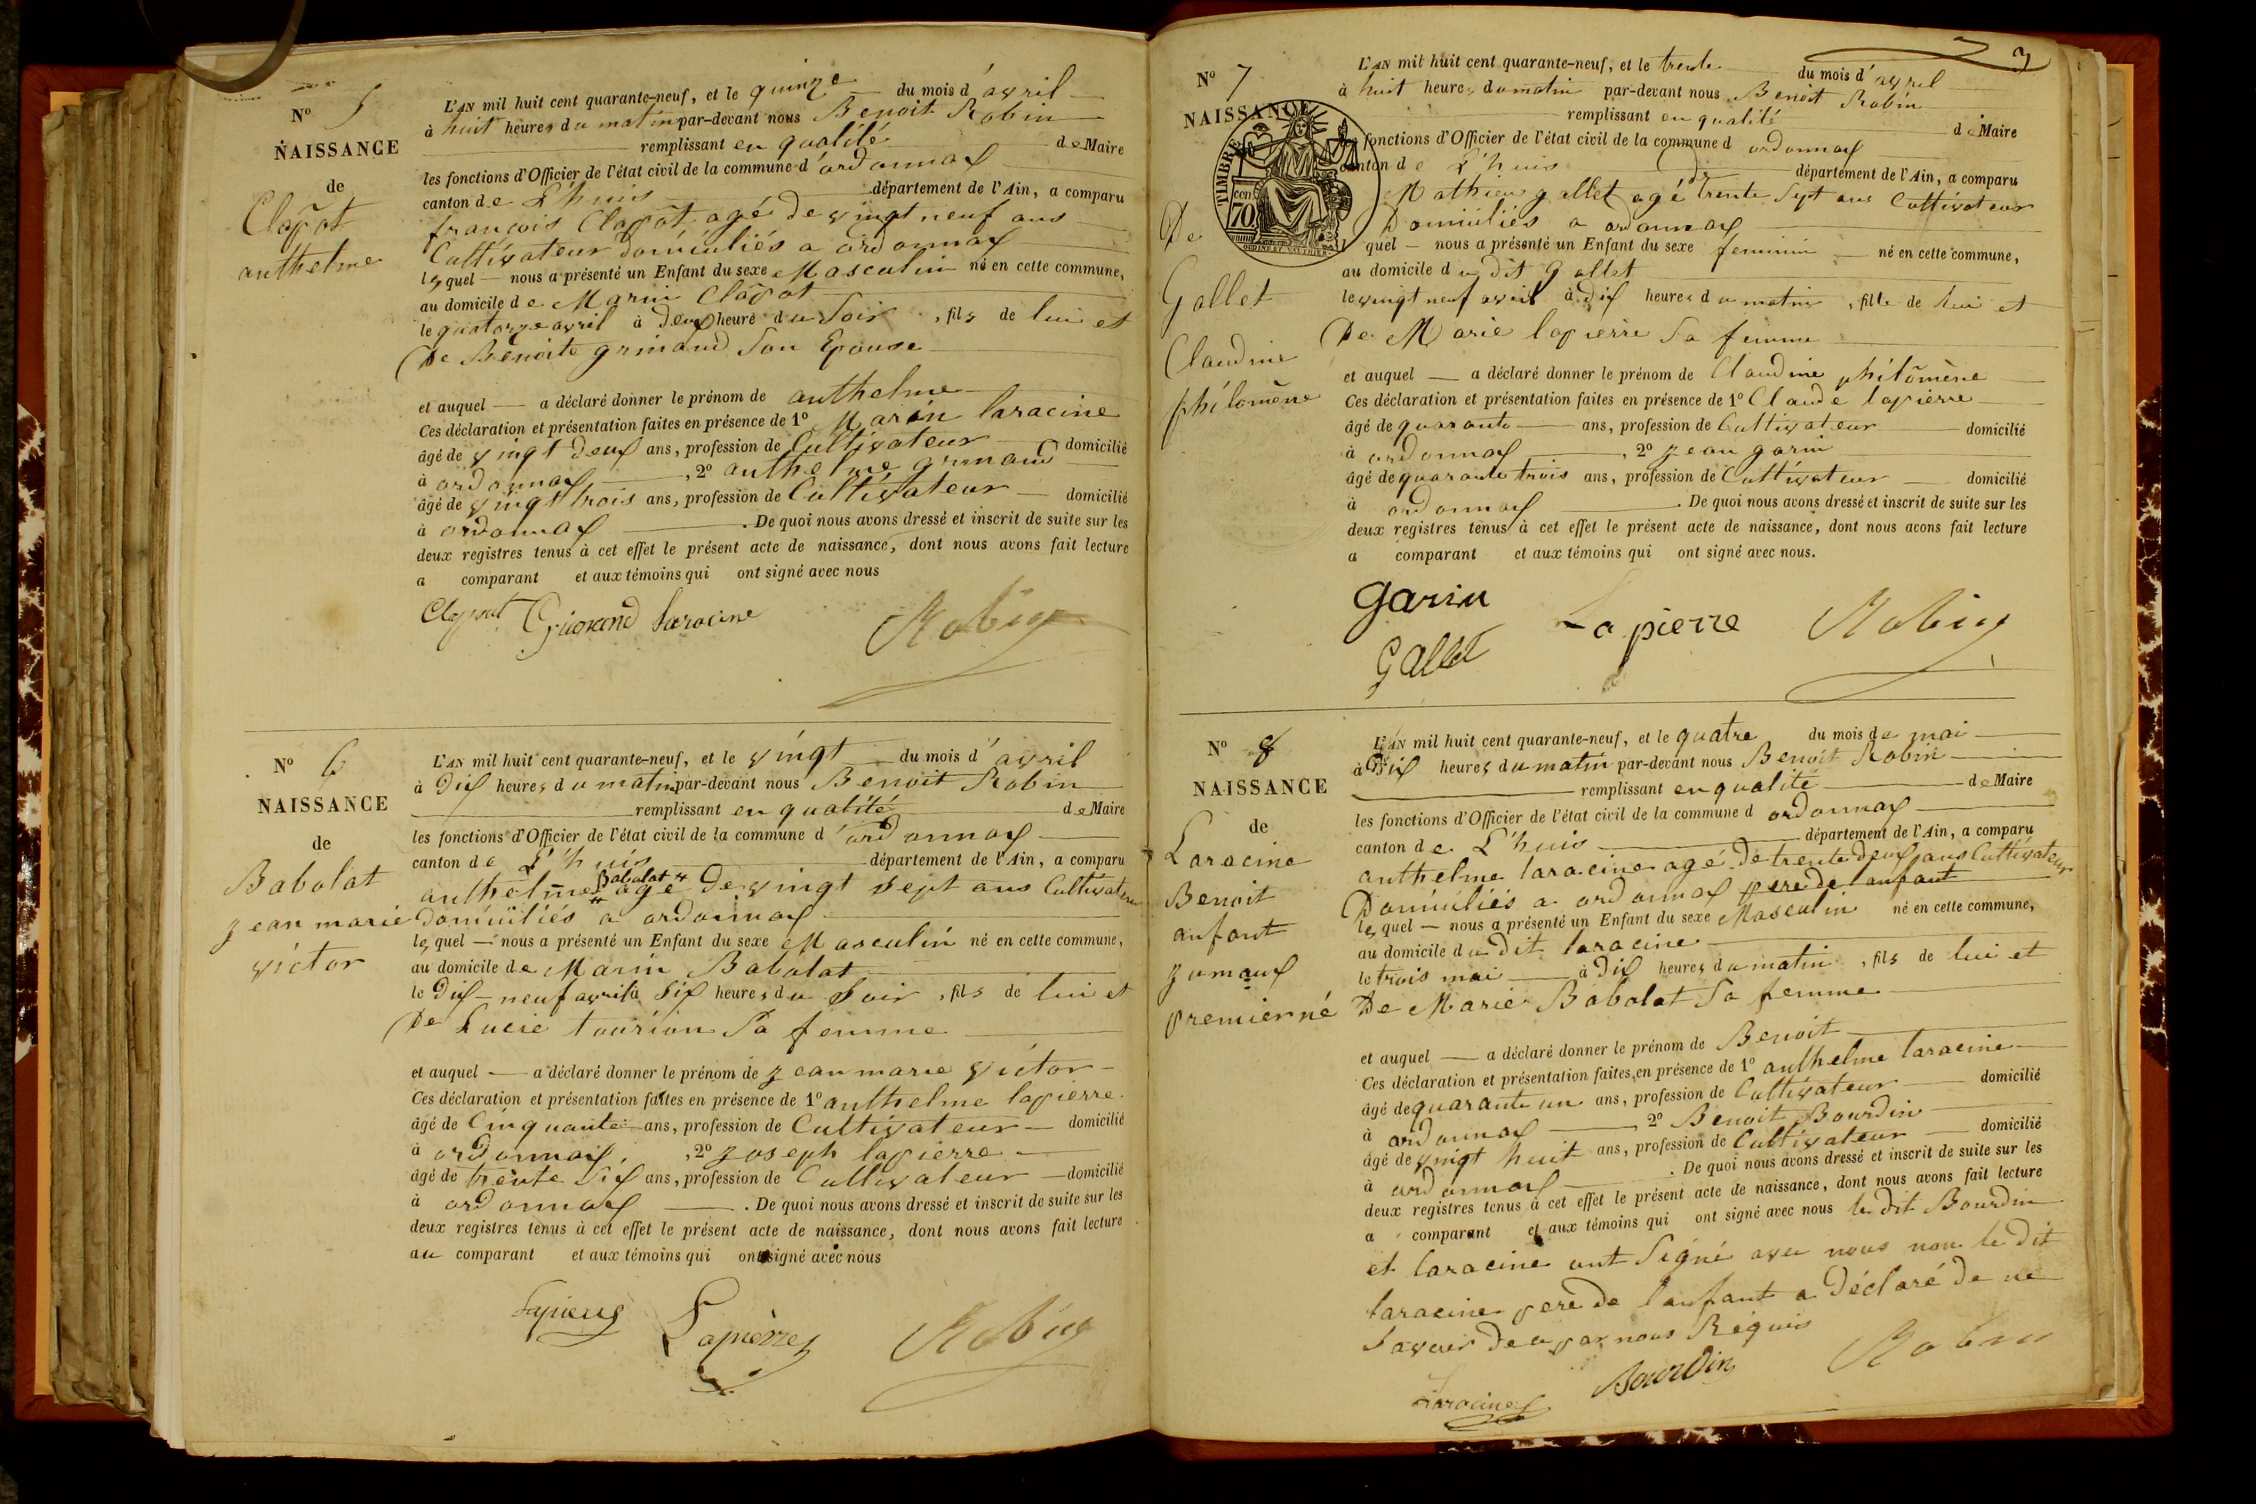 N° 5
NAISSANCE
de
Clapot
anthelme
L'AN mil huit cent quarante-neuf, et le quinze du mois d'avril
à huit heures du matin par-devant nous Benoit Robin
remplissant en qualité de Maire
les fonctions d'Officier de l'état civil de la commune d'ordonnax
canton de L'huis département de l'Ain, a comparu
françois Clapot agé de vingt neuf ans
Cultivateur domiciliés a ordonnax
lequel nous a présenté un Enfant du sexe Masculin né en cette commune,
au domicile de Marin Clapot
le quatorze avril à deux heure du Soir, fils de lui et
De Benoite grimand Son Epouse
et auquel a déclaré donner le prénom de anthelme
Ces déclaration et présentation faites en présence de 1° Marin laracine
âgé de vingt deux ans, profession de Cultivateur domicilié
à ordonnax, 2° anthelme grimand
âgé de vingt trois ans, profession de Cultivateur domicilié
à ordonnax. De quoi nous avons dressé et inscrit de suite sur les
deux registres tenus à cet effet le présent acte de naissance, dont nous avons fait lecture
a comparant et aux témoins qui ont signé avec nous
Clapot laracine Robin
N° 6
NAISSANCE
de
Babolat
jean marie
victor
L'AN mil huit cent quarante-neuf, et le vingt du mois d'avril
à Dix heures du matin par-devant nous Benoit Robin
remplissant en qualité de Maire
les fonctions d'Officier de l'état civil de la commune d'ordonnax
canton de L'huis département de l'Ain, a comparu
anthelme Babolat agé de vingt sept ans Cultivateur
domiciliés a ordonnax
lequel nous a présenté un Enfant du sexe Masculin né en cette commune,
au domicile de Marin Babolat
le Dix-neuf avril à Six heures du Soir, fils de lui et
De Lucie tourion Sa femme
et auquel a déclaré donner le prénom de jean marie victor
Ces déclaration et présentation faites en présence de 1° anthelme lapierre
âgé de Cinquante ans, profession de Cultivateur domicilié
à ordonnax, 2° joseph lapierre
âgé de trente Six ans, profession de Cultivateur domicilié
à ordonnax. De quoi nous avons dressé et inscrit de suite sur les
deux registres tenus à cet effet le présent acte de naissance, dont nous avons fait lecture
au comparant et aux témoins qui ont signé avec nous
Lapierre Lapierre Robin
3
N° 7
NAISSANCE
TIMBRE
70
De
Gallet
Claudine
philomène
L'AN mil huit cent quarante-neuf, et le trente du mois d'avril
à huit heures du matin par-devant nous Benoit Robin
remplissant en qualité de Maire
fonctions d'Officier de l'état civil de la commune d ordonnax
canton de L'huis département de l'Ain, a comparu
Mathieu gallet agé trente Sept ans Cultivateur
Domiciliés a ordonnax
quel nous a présenté un Enfant du sexe feminin né en cette commune,
au domicile du dit gallet
le vingt neuf avril à dix heures du matin, fille de lui et
De Marie lapierre Sa femme
et auquel a déclaré donner le prénom de Claudine philomène
Ces déclaration et présentation faites en présence de 1° Claude lapierre
âgé de quarante ans, profession de Cultivateur domicilié
à ordonnax, 2° jean garin
âgé de quarante trois ans, profession de Cultivateur domicilié
à ordonnax. De quoi nous avons dressé et inscrit de suite sur les
deux registres tenus à cet effet le présent acte de naissance, dont nous avons fait lecture
a comparant et aux témoins qui ont signé avec nous.
garin Lapierre Robin
gallet
N° 8
NAISSANCE
de
Laracine
Benoit
anfant
jumaux
premier né
L'AN mil huit cent quarante-neuf, et le quatre du mois de mai
à Dix heures du matin par-devant nous Benoit Robin
remplissant en qualité de Maire
les fonctions d'Officier de l'état civil de la commune d ordonnax
canton de L'huis département de l'Ain, a comparu
anthelme laracine agé de trente deux ans Cultivateur
Domiciliés a ordonnax pere de lanfant
lequel nous a présenté un Enfant du sexe Masculin né en cette commune,
au domicile du dit laracine
le trois mai à Dix heures du matin, fils de lui et
De Marie Babolat Sa femme
et auquel a déclaré donner le prénom de Benoit
Ces déclaration et présentation faites en présence de 1° anthelme laracine
âgé de quarante un ans, profession de Cultivateur domicilié
à ordonnax 2° Benoit Bourdin
âgé de vingt huit ans, profession de Cultivateur domicilié
à ordonnax. De quoi nous avons dressé et inscrit de suite sur les
deux registres tenus à cet effet le présent acte de naissance, dont nous avons fait lecture
a comparant et aux témoins qui ont signé avec nous le dit Bourdin
et laracine ont Signé avec nous non le dit
laracine pere de lanfant a Déclaré de ne
Savoir de a par nous Réquis
Laracine Bourdin Robin